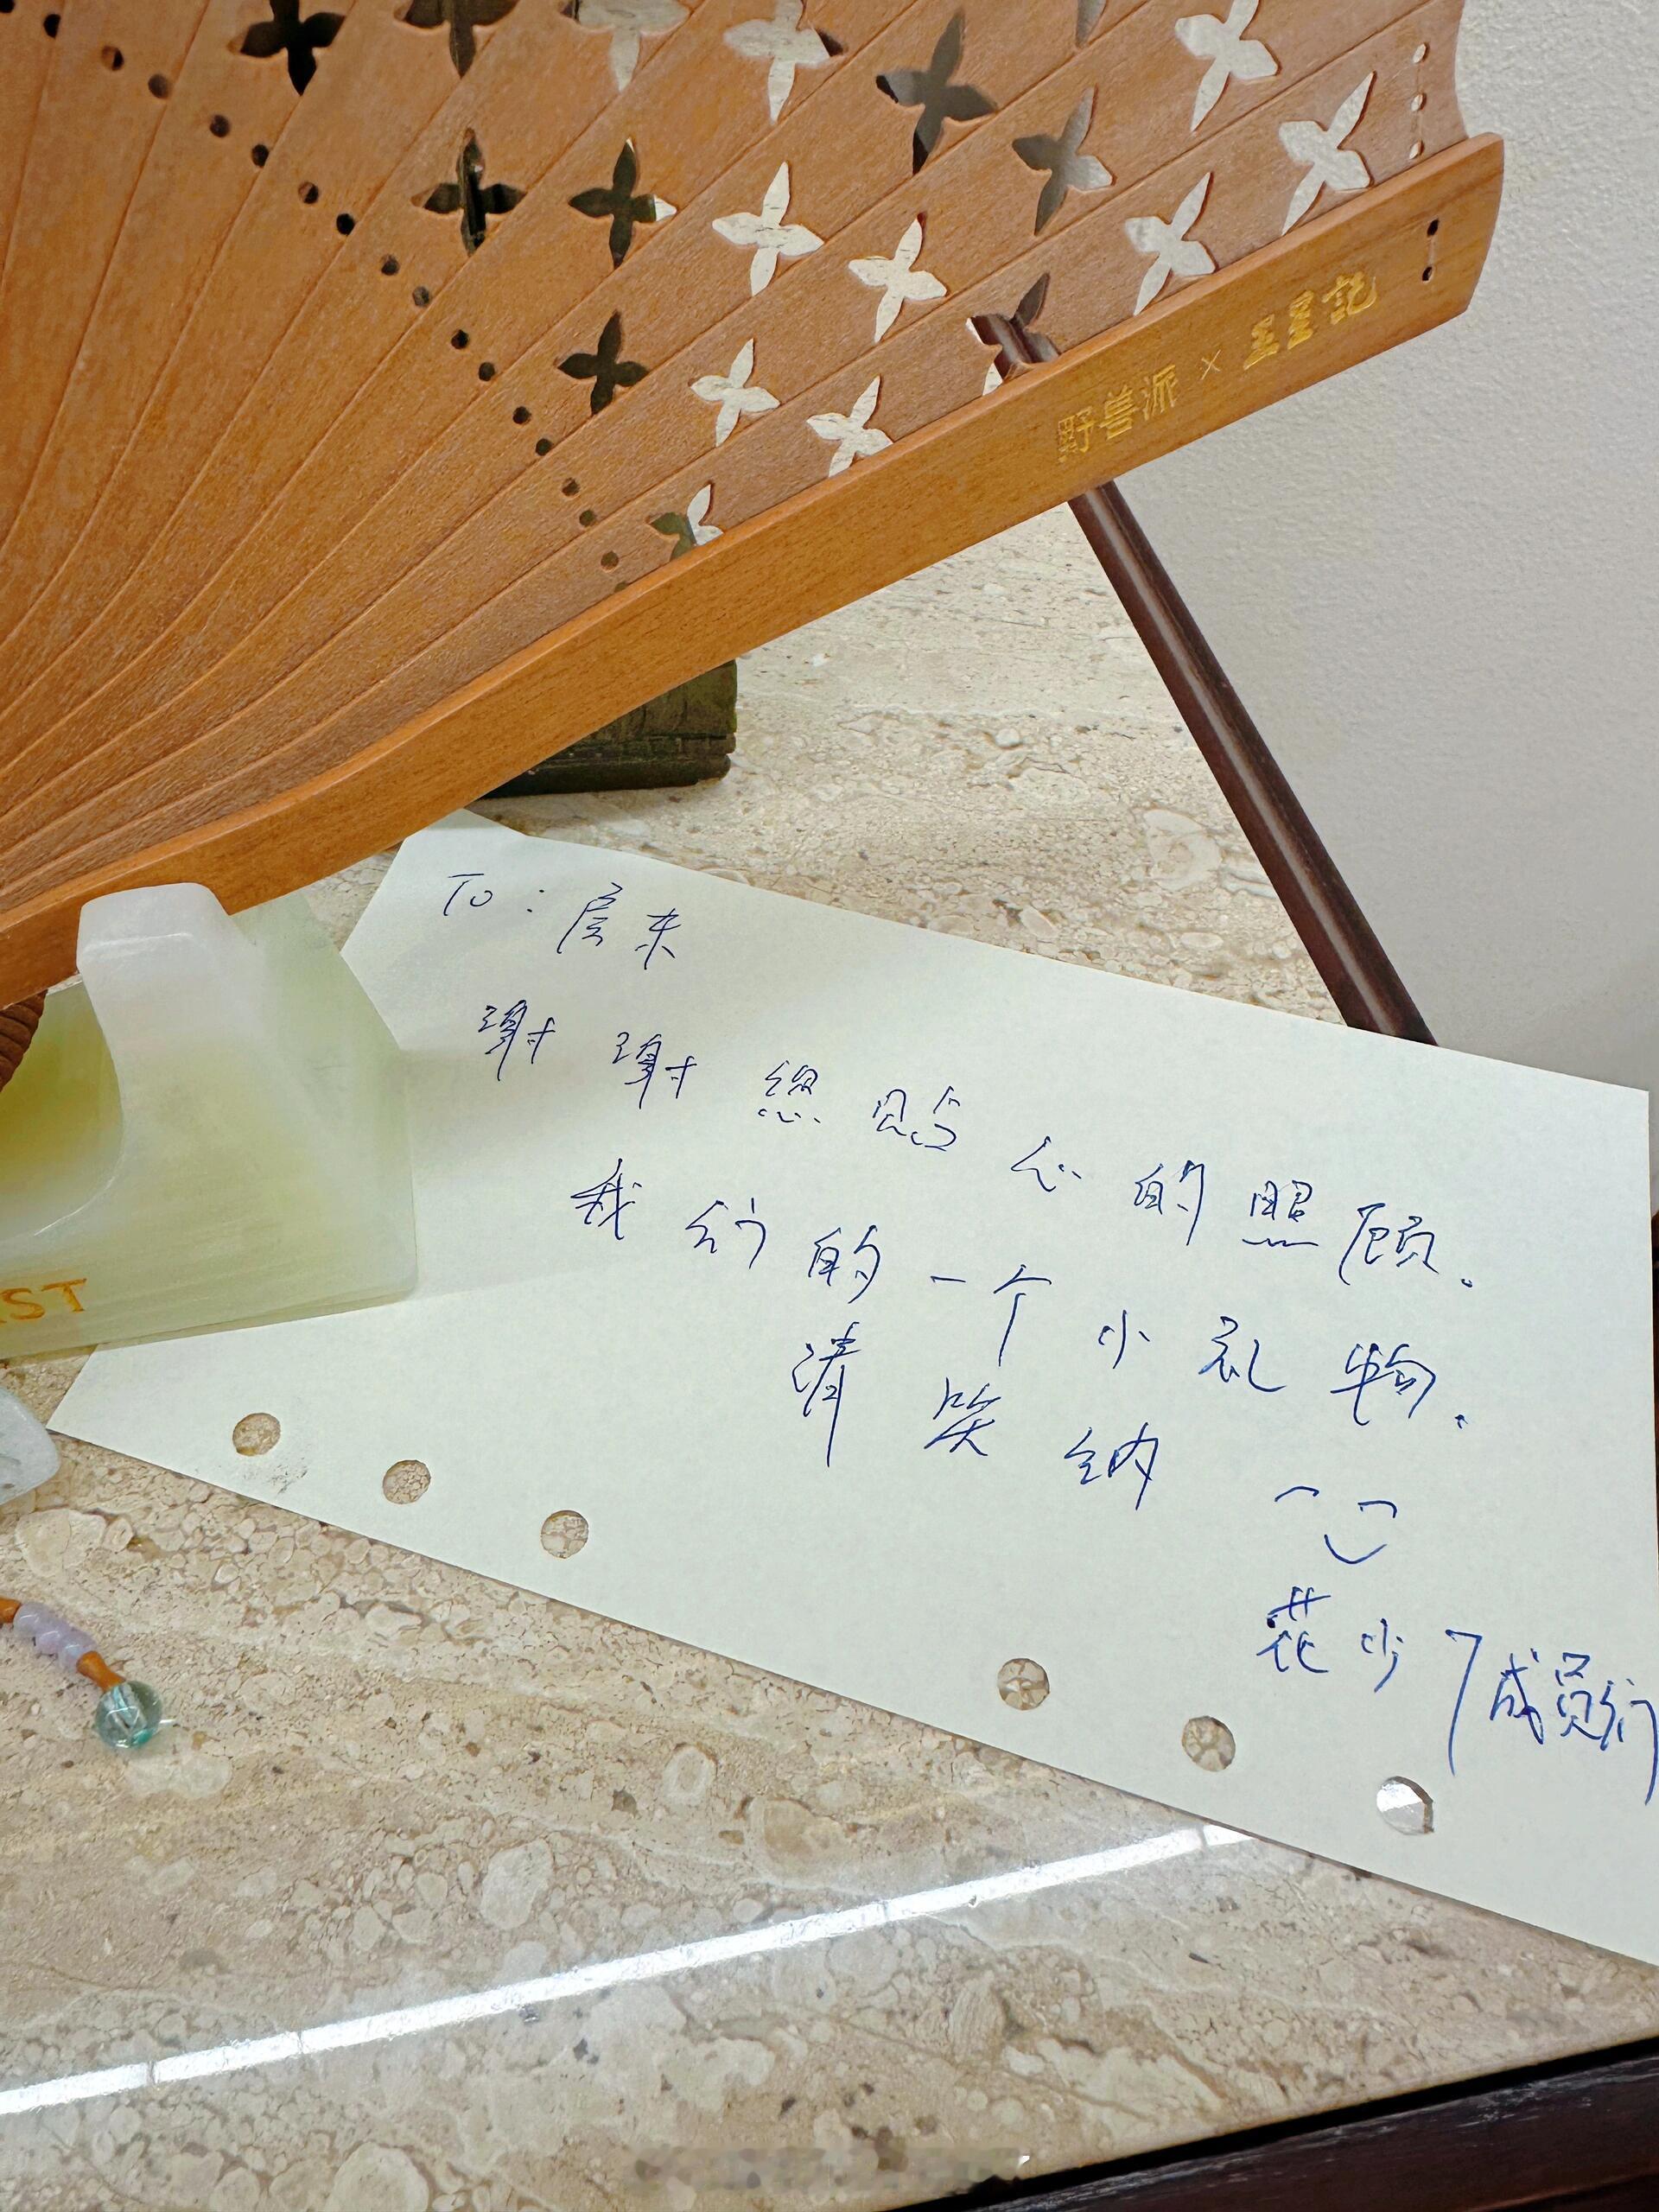 野兽派 × 王星記
To：房东
谢谢您贴心的照顾。
我们的一个小礼物.
请笑纳
花少7成员们
ST